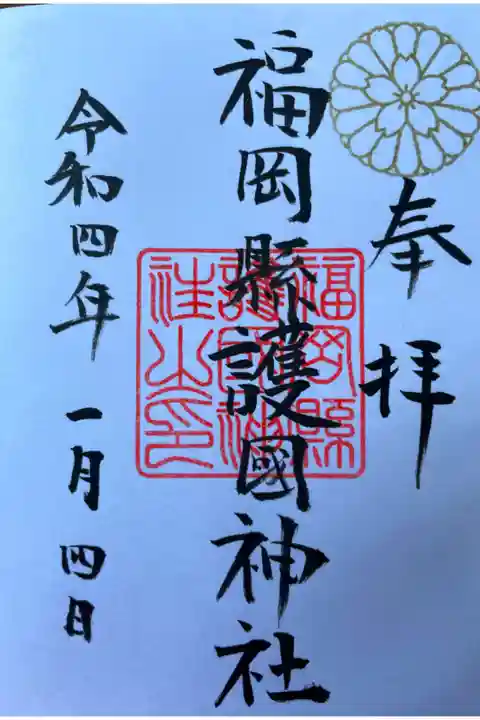 奉拝
福岡縣護國神社
福岡縣
護國神
社之印
令和四年一月四日